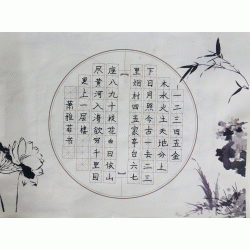 一二三四五金
木水火土天地分上
下日月照今古一去二三
里烟村四五家亭台六七
座八九十枝花白日依山
尽黄河入海欲穷千里目
更上一层楼